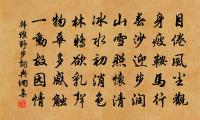 目倦風塵觀
身疲鞍馬行
春沙迎步潤
山雪照懷清
冰水初消色
林鶯欲乳聲
物華多感觸
一動故園情
韓維野步詞典網集